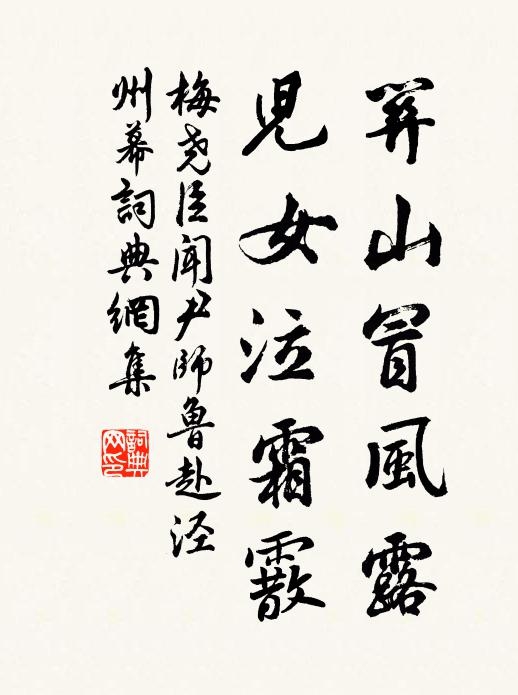 笄山冒風露
兒女泣霜霰
梅尧臣聞尹師魯赴泾
州幕詞典網集
詞典
网印